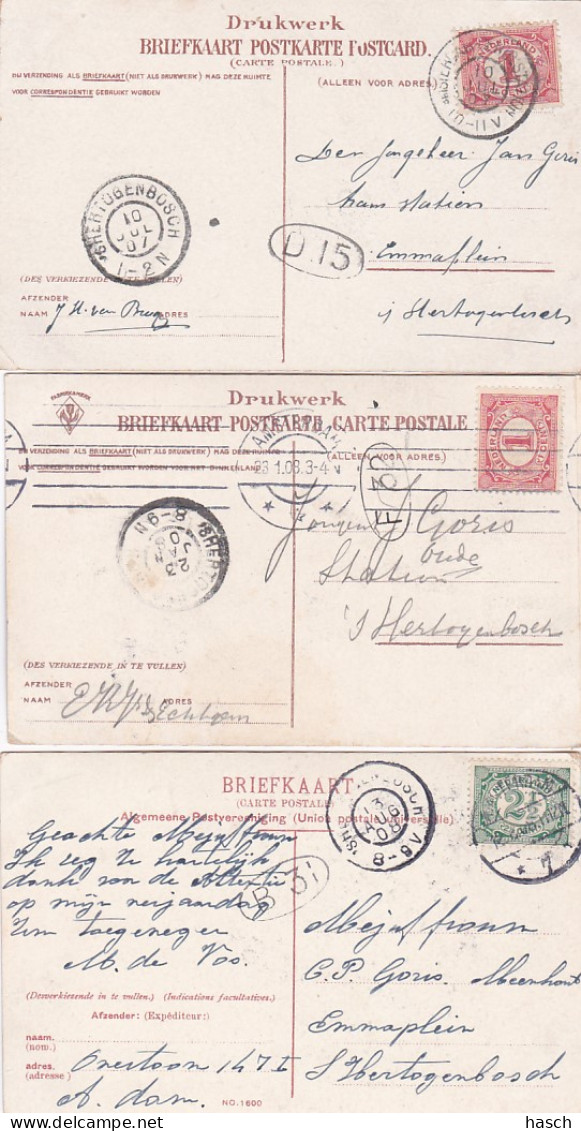 Drukwerk
BRIEFKAART POSTKARTE POSTCARD.
(CARTE POSTALE.)
BIJ VERZENDING ALS BRIEFKAART (NIET ALS DRUKWERK) MAG DEZE RUIMTE
VOOR CORRESPONDENTIE GEBRUIKT WORDEN
(ALLEEN VOOR ADRES)
NEDERLAND
1
Den Jongeheer Jan Goris
ham station
Emmaplein
's Hertogenbosch
'SHERTOGENBOSCH
10
JUL
07
1-2 N
D 15
(DES VERKIEZENDE IN TE VULLEN)
AFZENDER
NAAM J. H. van ADRES
Drukwerk
BRIEFKAART-POSTKARTE CARTE POSTALE
BIJ VERZENDING ALS BRIEFKAART (NIET ALS DRUKWERK) MAG DEZE RUIMTE
VOOR CORRESPONDENTIE GEBRUIKT WORDEN VOOR HET BINNENLAND
(ALLEEN VOOR ADRES)
NEDERLAND
1
23 1.08.3-4 N
F 32
'SHERTO
23
JA
8-9 N
Goris
Oude
Station
's Hertogenbosch
(DES VERKIEZENDE IN TE VULLEN)
AFZENDER
NAAM ADRES
BRIEFKAART
(CARTE POSTALE)
Algemeene Postvereeniging (Union postale universelle)
2½
8-9V
B 31
Geachte Mejuffrouw
Ik zeg U hartelijk
dank voor de Attentie
op mijn verjaardag
Uw toegenegen
M. de Vos.
Mejuffrouw
C. P. Goris. Meerhout
Emmaplein
S Hertogenbosch
(Desverkiezende in te vullen.) (Indications facultatives.)
Afzender: (Expéditeur:)
naam.
(nom.)
adres. Overtoom 147 I
(adresse)
A. dam.
NO. 1600
© hasch